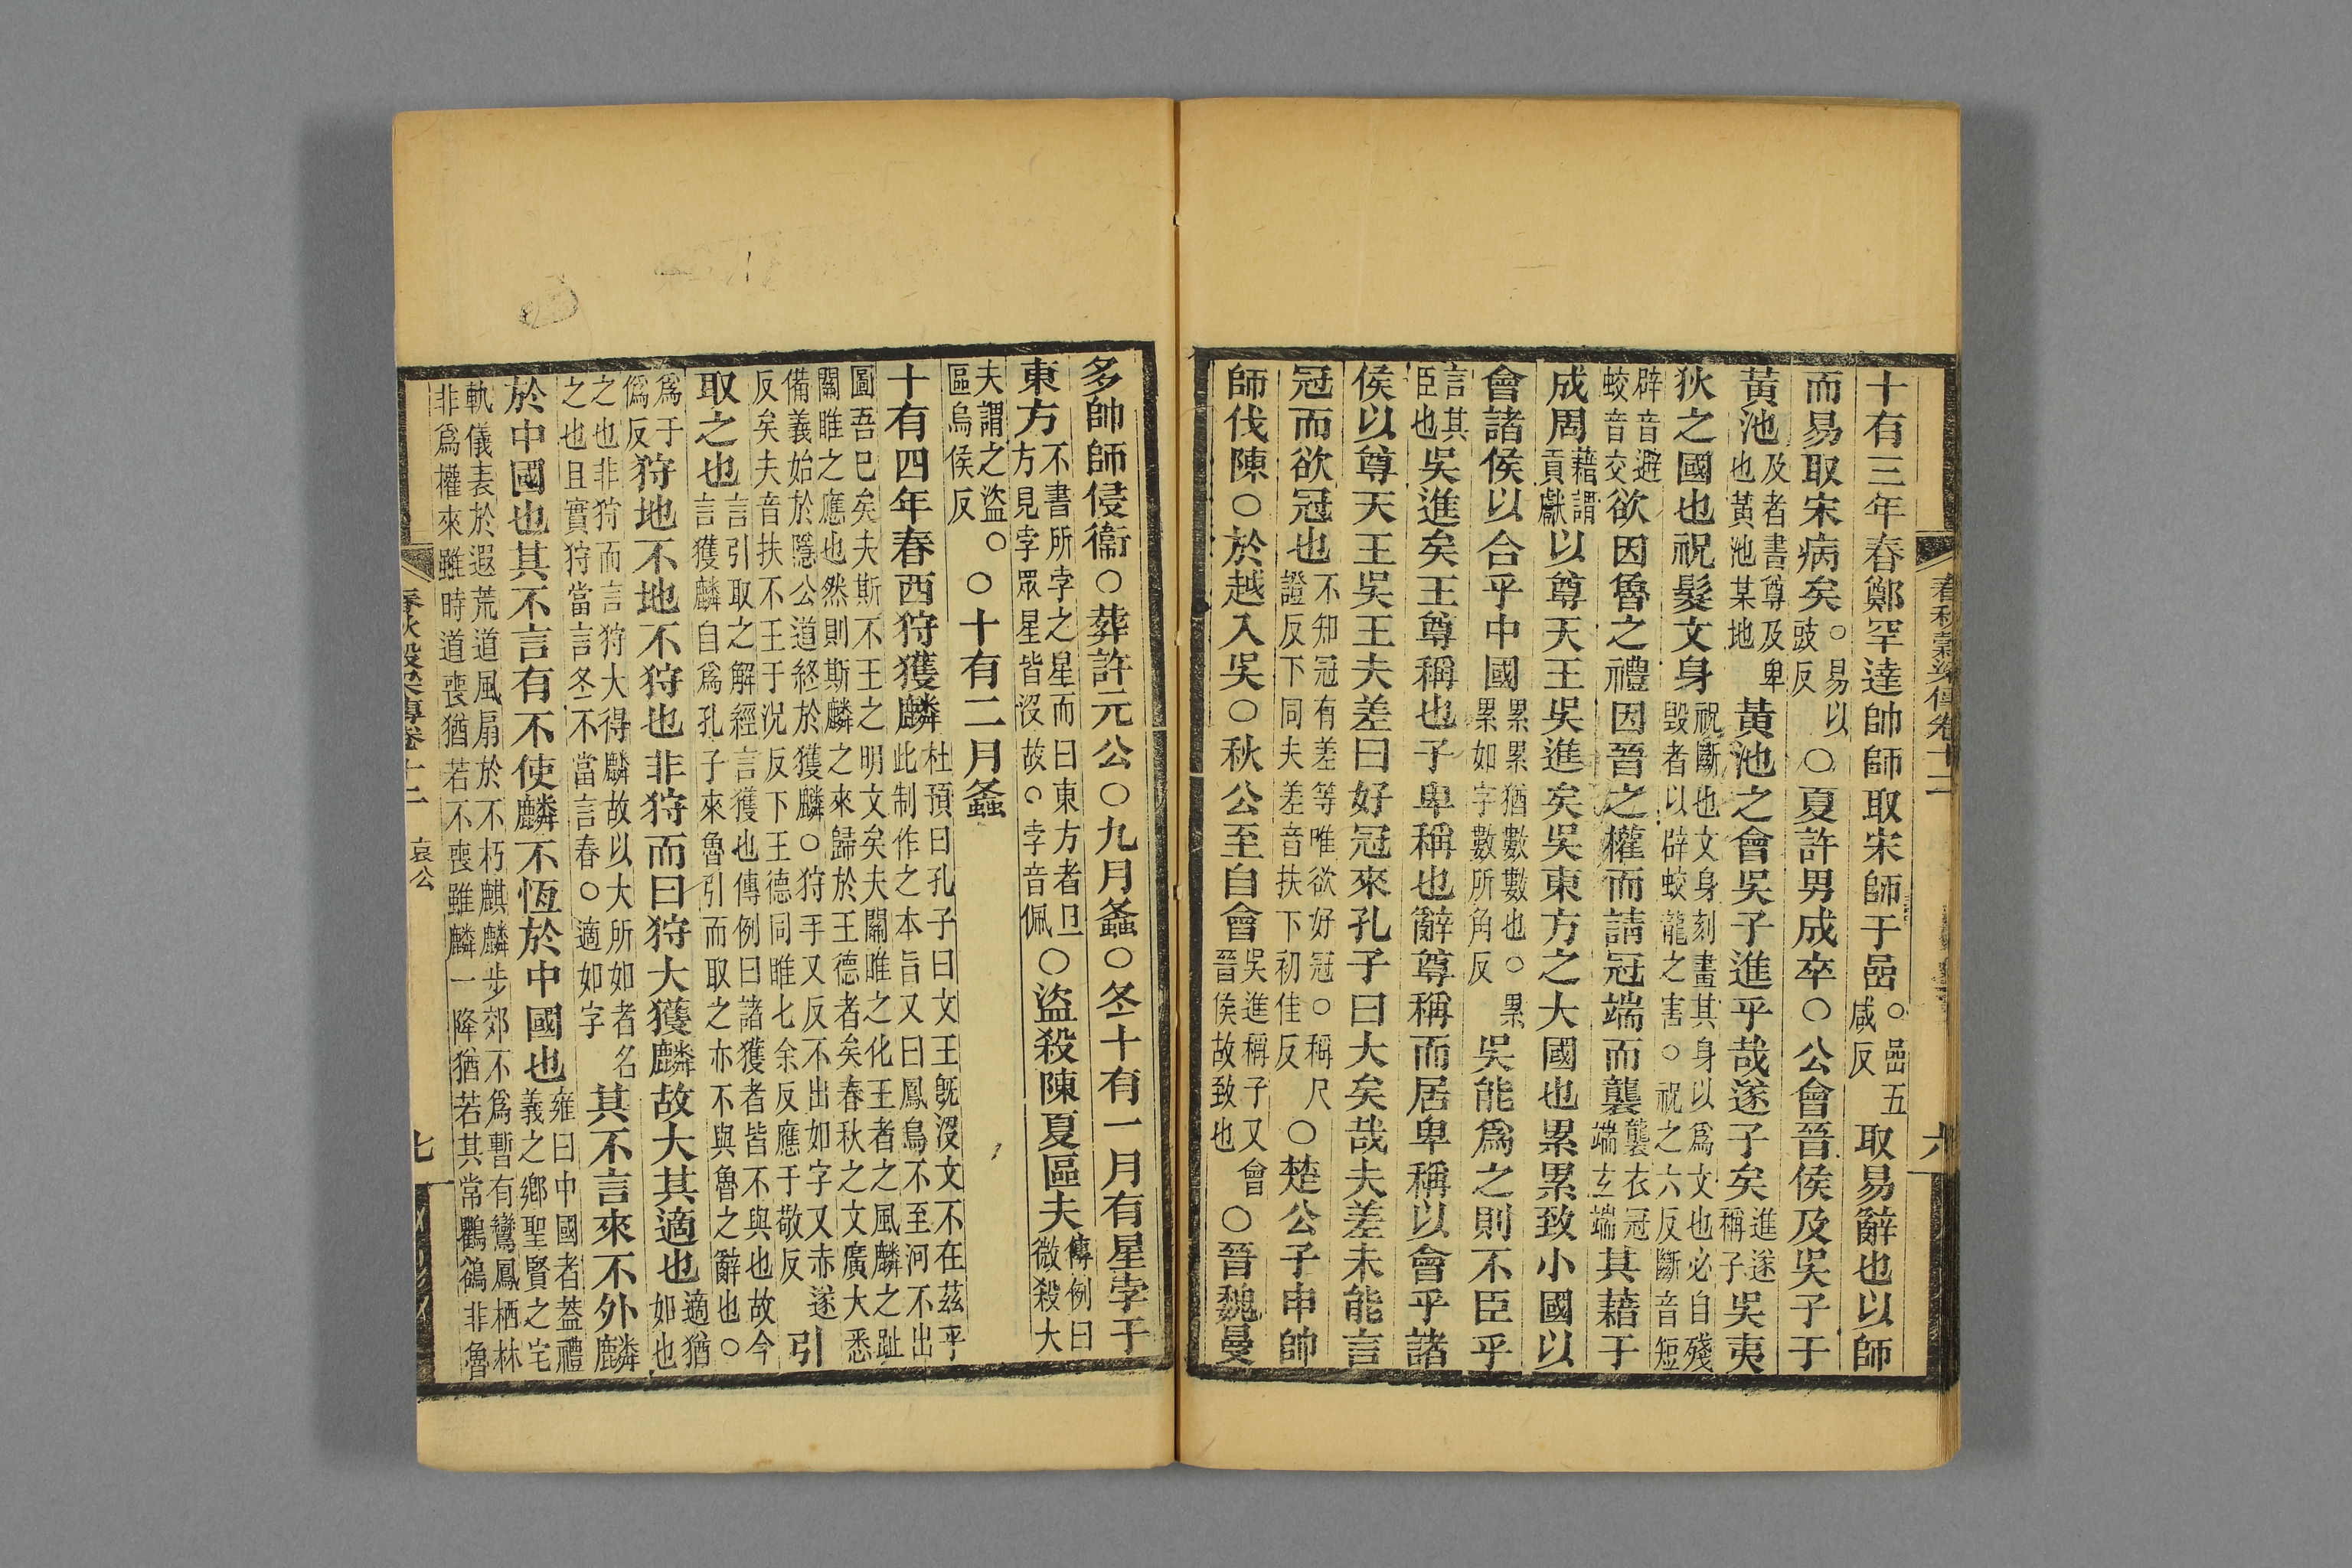 春秋穀梁傳卷十二
六
十有三年春鄭罕達帥師取宋師于嵒○嵒五咸反取易辭也以師
而易取宋病矣○易以豉反○夏許男成卒○公會晉侯及吳子于
黃池及者書尊及卑也黃池某地黃池之會吳子進乎哉遂子矣進遂稱子吳夷
狄之國也祝髮文身祝斷也文身刻畫其身以為文也必自殘毀者以辟蛟龍之害○祝之六反斷音短
辟音避蛟音交欲因魯之禮因晉之權而請冠端而襲襲衣冠端玄端其藉于
成周藉謂貢獻以尊天王吳進矣吳東方之大國也累累致小國以
會諸侯以合乎中國累累猶數數也○累累如字數所角反吳能爲之則不臣乎
言其臣也吳進矣王尊稱也子卑稱也辭尊稱而居卑稱以會乎諸
侯以尊天王吳王夫差曰好冠來孔子曰大矣哉夫差未能言
冠而欲冠也不知冠有差等唯欲好冠○稱尺證反下同夫差音扶下初佳反○楚公子申帥
師伐陳○於越入吳○秋公至自會吳進稱子又會晉侯故致也○晉魏曼
多帥師侵衞○葬許元公○九月螽○冬十有一月有星孛于
東方不書所孛之星而曰東方者旦方見孛眾星皆沒故○孛音佩○盜殺陳夏區夫傳例曰微殺大
夫謂之盜○區烏侯反○十有二月螽
十有四年春西狩獲麟杜預曰孔子曰文王旣沒文不在茲乎此制作之本旨又曰鳳鳥不至河不出
圖吾已矣夫斯不王之明文矣夫關雎之化王者之風麟之趾關雎之應也然則斯麟之來歸於王德者矣春秋之文廣大悉
備義始於隱公道終於獲麟○狩手又反不出如字又赤遂反矣夫音扶不王于況反下王德同雎七余反應于敬反引
取之也言引取之解經言獲也傳例曰諸獲者皆不與也故今言獲麟自爲孔子來魯引而取之亦不與魯之辭也○
爲于僞反狩地不地不狩也非狩而曰狩大獲麟故大其適也適猶如也
之也非狩而言狩大得麟故以大所如者名之也且實狩當言冬不當言春○適如字其不言來不外麟
於中國也其不言有不使麟不恆於中國也雍曰中國者蓋禮義之鄉聖賢之宅
軌儀表於遐荒道風扇於不朽麒麟步郊不爲暫有鸞鳳栖林非爲權來雖時道喪猶若不喪雖麟一降猶若其常鸜鵒非魯
春秋穀梁傳卷十二 哀公
七